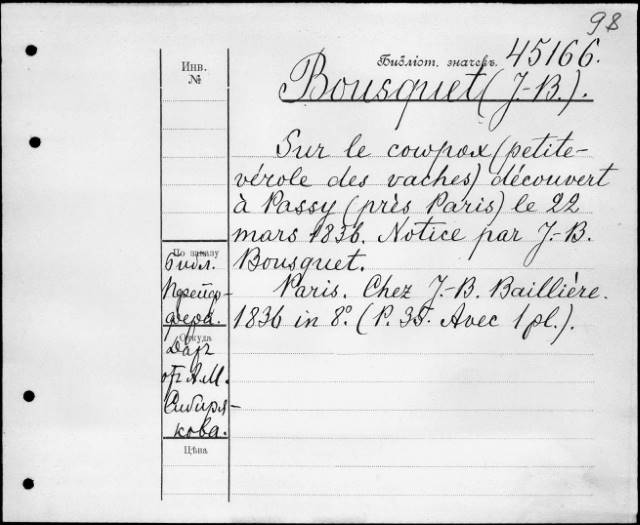 98
Библіот. значекъ. 45166.
Инв.
№
Bousquet (J.-B.).
Sur le cowpox (petite-
vérole des vaches) découvert
à Passy (près Paris) le 22
mars 1836. Notice par J.-B.
Bousquet.
Paris. Chez J.-B. Baillière.
1836 in 8º. (P. 35. Avec 1 pl.).
По каталогу
Библ.
Откуда
Даръ
отъ А.М.
Сибиря-
кова.
Цѣна